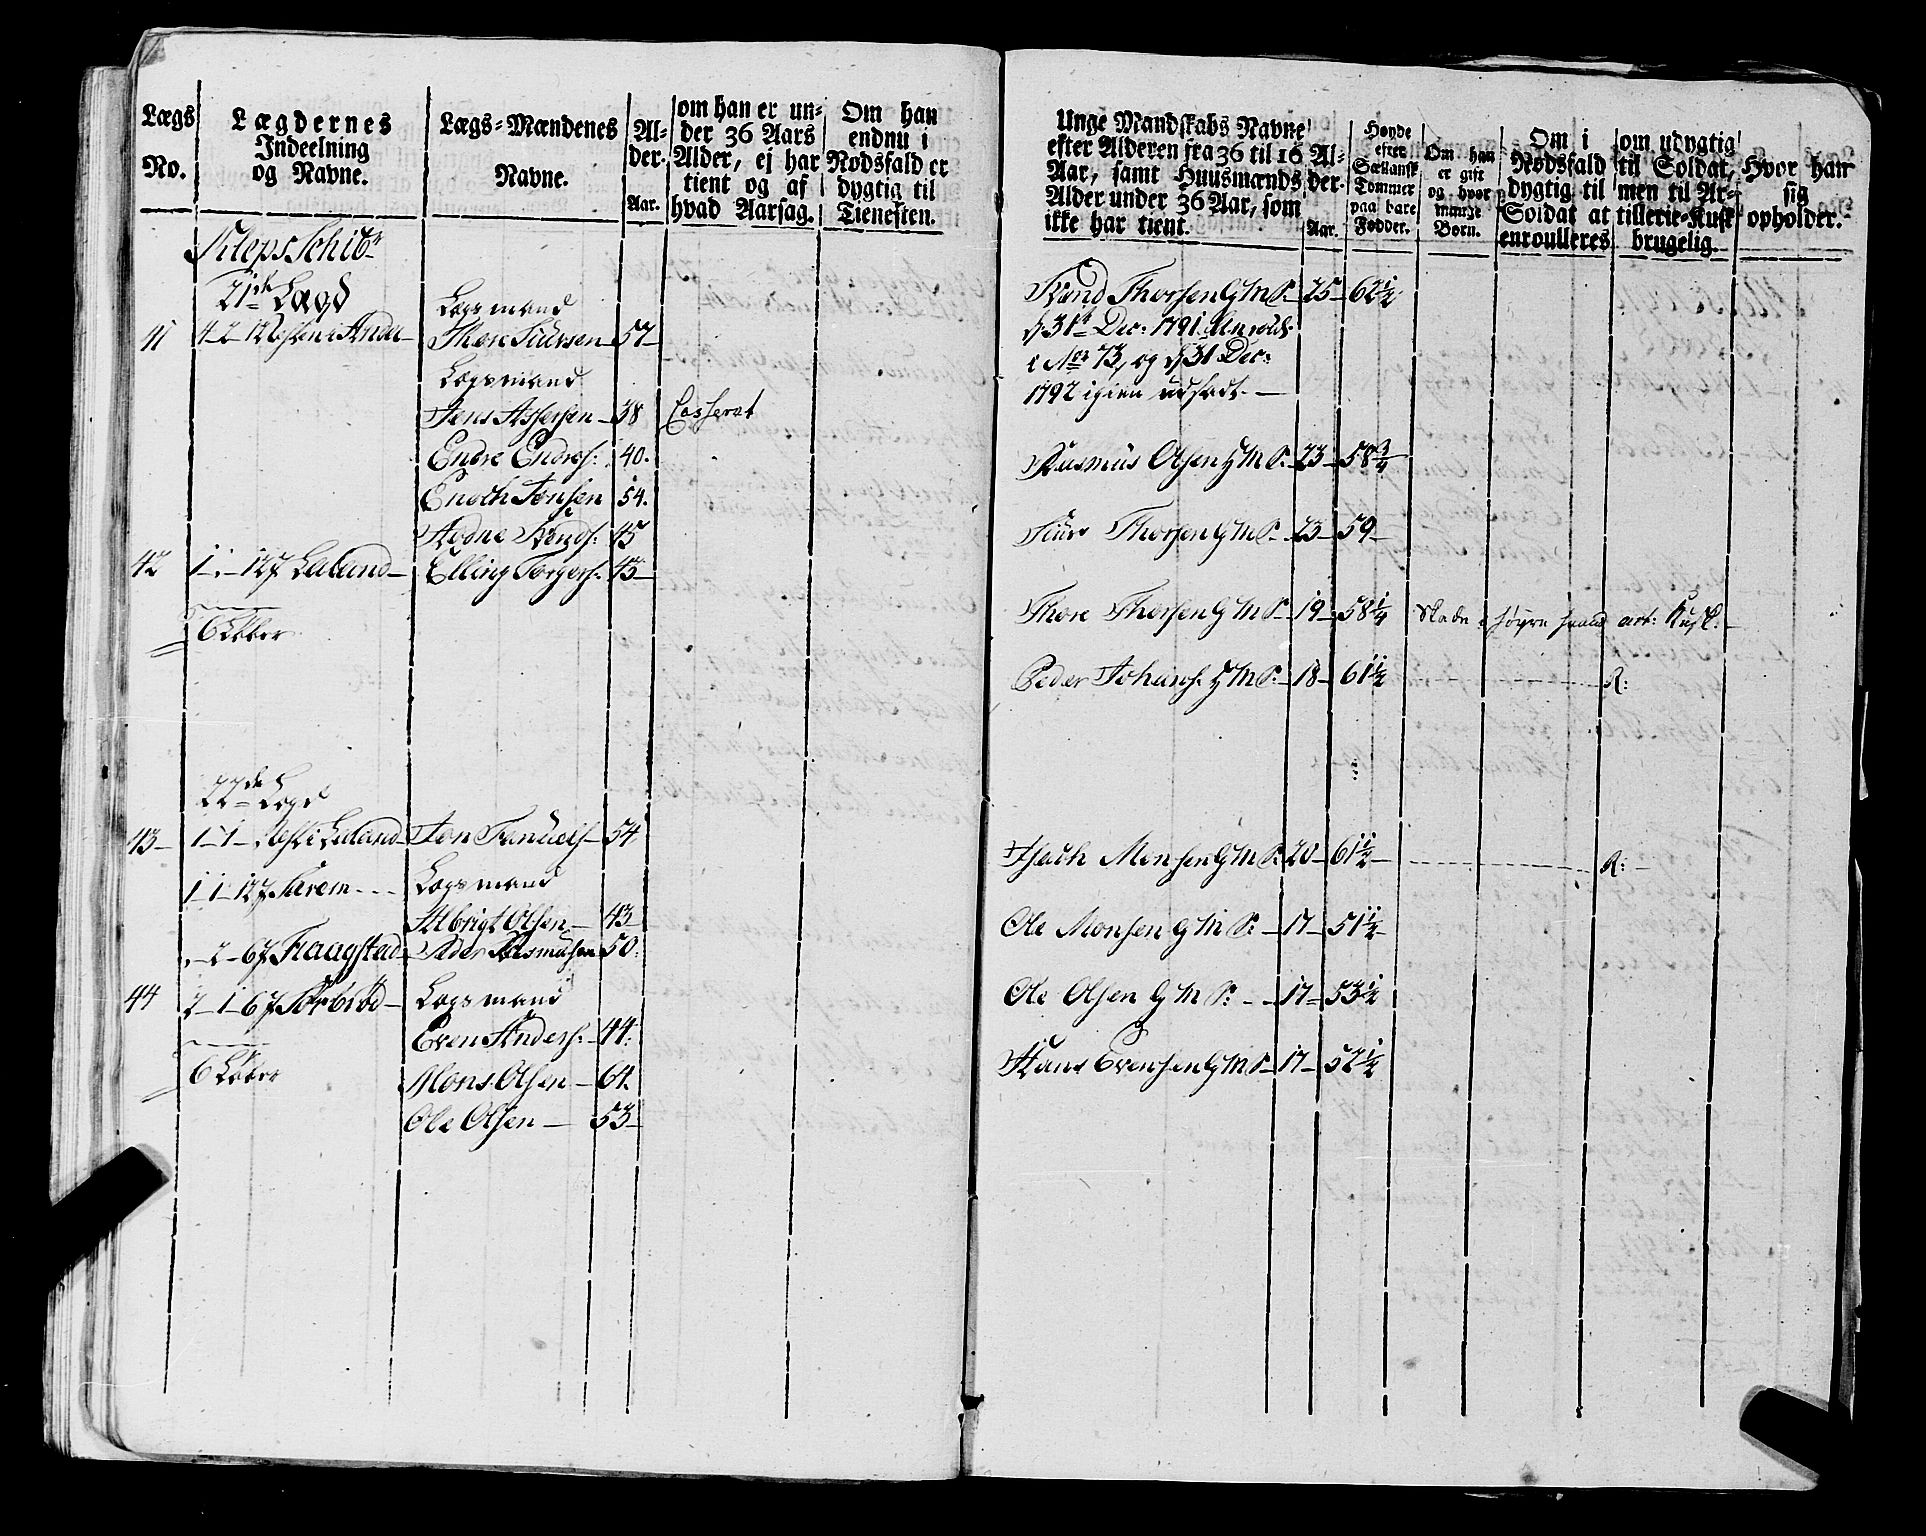 Lægs No.
Lægdernes Indeelning og Navne.
Lægs-Mændenes Navne.
Alder. Aar.
om han er under 36 Aars Alder, ej har tient og af hvad Aarsag.
Om han endnu i Nødsfald er dygtig til Tienesten.
Kleps Schibr
21de Lægd
Lægsmand
41 Thore Siursen 57
Lægsmand
Jens Assersen 38 Casserat
Endre Endres: 40.
Enoch Jonsen 54.
Aadne Knuds: 45
42 1 - 127 Laland Elling Torgers: 43
6 Løber
22de Lægd
43 1-1- Laland Jon 54
1 1 127 Særem Lægsmand
Albrigt Olsen 43
- 2 - 67 Haagstad Peder Rasmusen 50.
44 2-1-67 Sørbrød Lægsmand
Even Anders: 44:
6 Løber
Mons Olsen 64.
Ole Olsen 53
Unge Mandskabs Navne efter Alderen fra 36 til 16 Aar, samt Huusmænds Alder under 36 Aar, som ikke har tient.
Alder. Aar.
Høyde efter Siællansk Tommer paa bare Fødder.
Om han er gift og hvor mange Børn.
Om i Nødsfald dygtig til Soldat at enroulleres
om udygtig til Soldat, men til Artillerie-Kusk brugelig.
Hvor han sig opholder.
Knud Thorsen G M S. 25 62½
d 31t Dec: 1791 Enroled
No 73, og d 31 Dec:
1792 igien udsadt.
Rasmus Olsen G M S. 23 58¾
Siur Thorsen G M S. 23 59
Thore Thorsen G M S. 19 58¼ Skade i høyre haand art: Kusk.
Peder Johans: G M S. 18 61½ R:
Isach Monsen G M S: 20 61½ R:
Ole Monsen G M S: 17 51½
Ole Olsen G M S: 17 53½
Hans Evensen G M S 17 52½